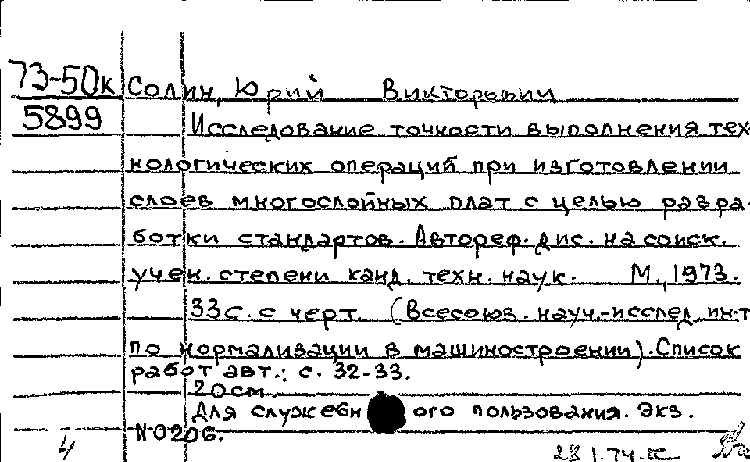 73-50к Солин, Юрий Викторьвич
5899 Исследование точности выполнения тех
нологических операций при изготовлении
слоев многослойных плат с целью разра-
ботки стандартов. Автореф. дис. на соиск.
учен. степени канд. техн. наук. М., 1973.
33 с. с черт. (Всесоюз. науч.-исслед. ин-т
по нормализации в машиностроении). Список
работ авт.: с. 32-33.
20 см.
Для служебного пользования. Экз.
N0206.
4 28 I.74.